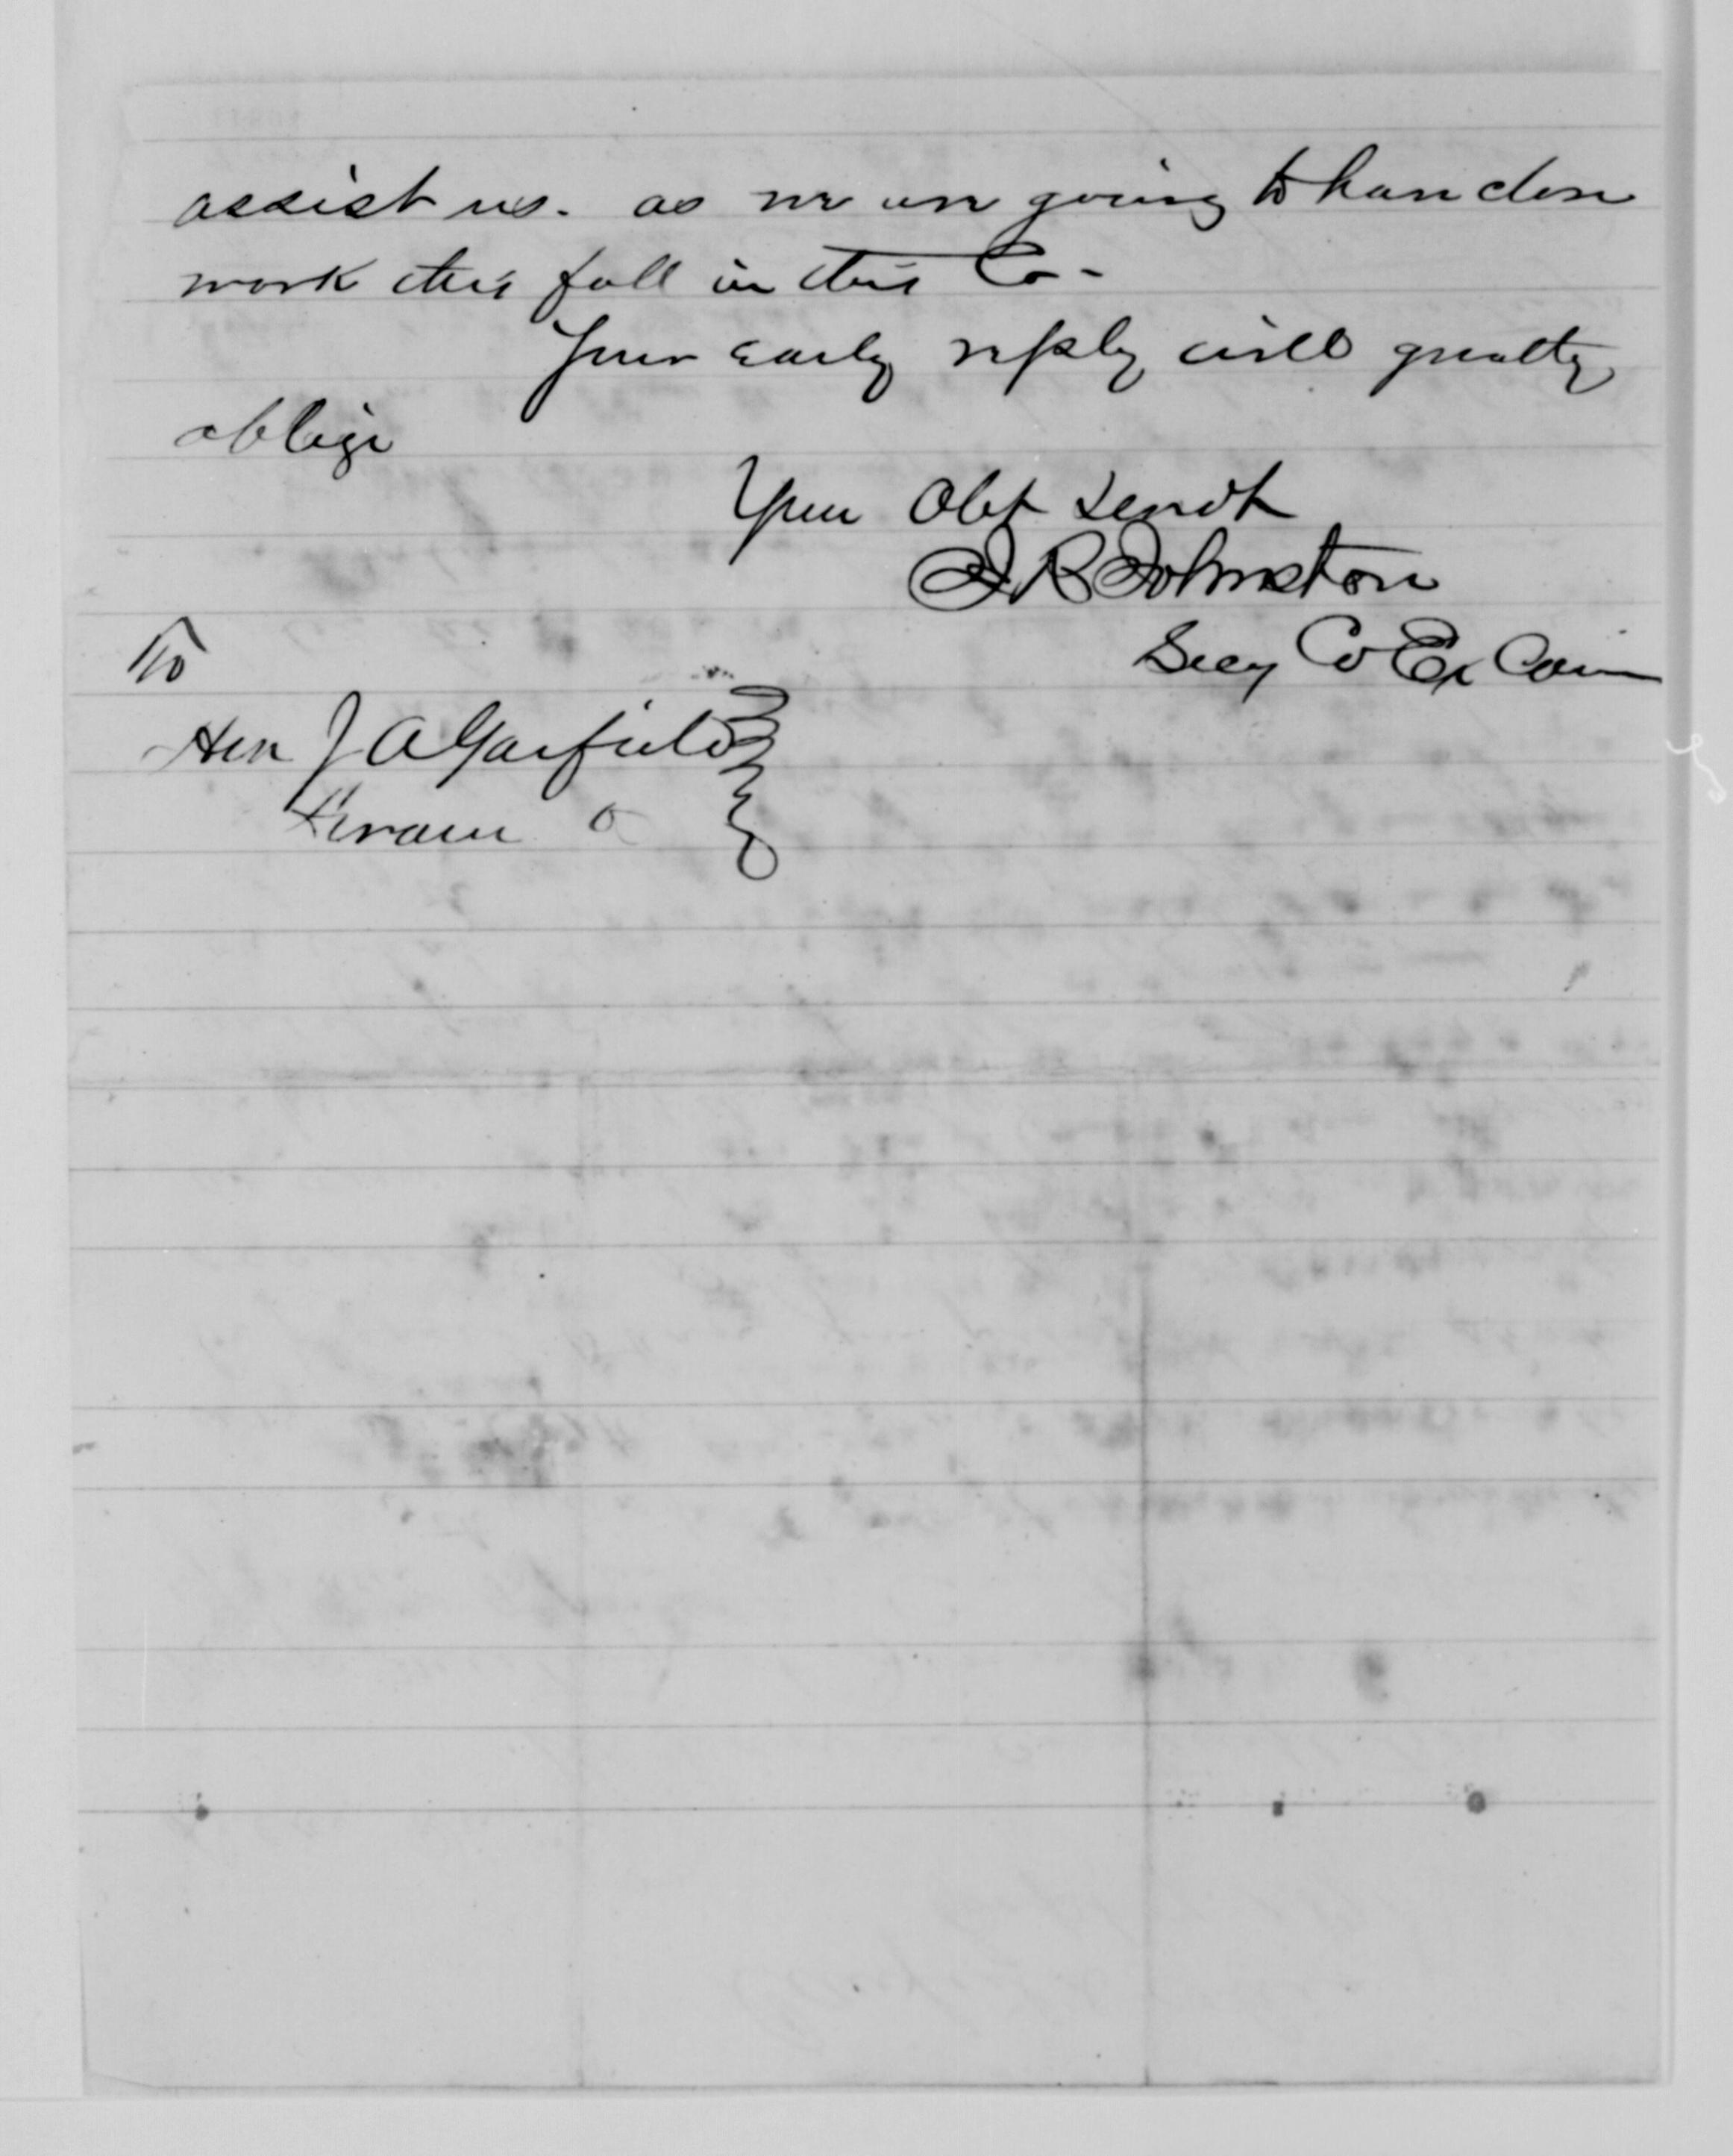 assist us. as we are going to have close
work this fall in this Co-
Your early reply will greatly
oblige
Your Obt Servt
J R Johnston
Secy Co Ex Com
To
Hon J A Garfield
Hiram O